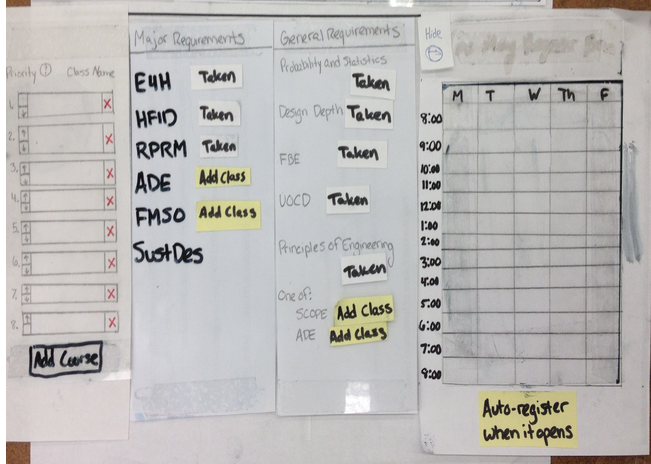 Priority Class Name
1. X
2. X
3. X
4. X
5. X
6. X
7. X
8. X
Add Course
Major Requirements
E4H Taken
HFID Taken
RPRM Taken
ADE Add Class
FMSO Add Class
SustDes
General Requirements
Probability and Statistics
Taken
Design Depth Taken
FBE Taken
UOCD Taken
Principles of Engineering
Taken
One of:
SCOPE Add Class
ADE Add Class
Hide
M T W Th F
8:00
9:00
10:00
11:00
12:00
1:00
2:00
3:00
4:00
5:00
6:00
7:00
9:00
Auto-register
when it opens